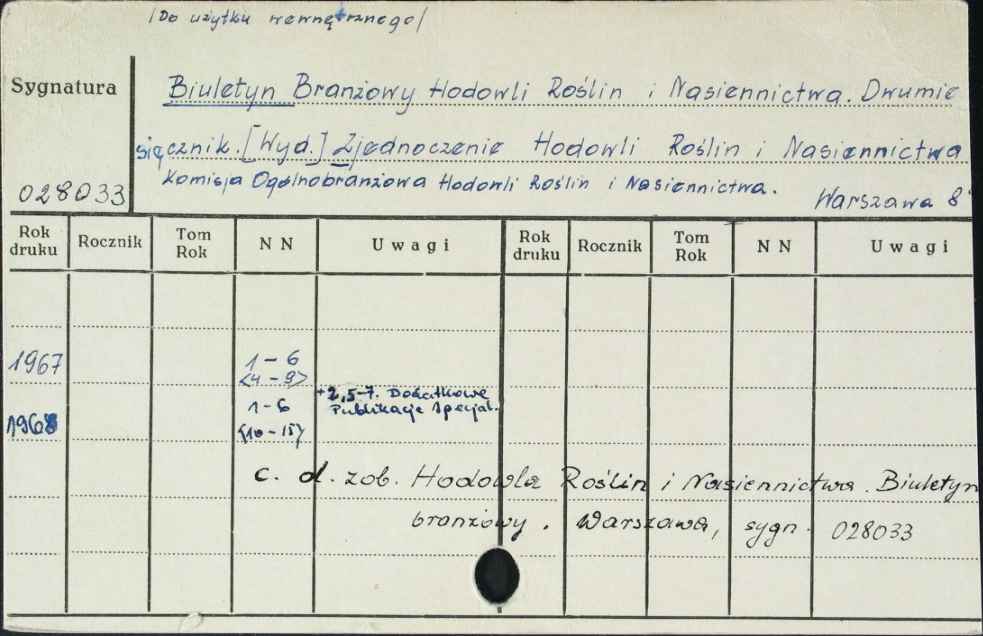 /Do użytku wewnętrznego/
Sygnatura
Biuletyn Branżowy Hodowli Roślin i Nasiennictwa. Dwumie
sięcznik. [Wyd.] Zjednoczenie Hodowli Roślin i Nasiennictwa
Komisja Ogólnobranżowa Hodowli Roślin i Nasiennictwa.
028033
Warszawa 8°
Rok druku Rocznik Tom Rok NN Uwagi Rok druku Rocznik Tom Rok NN Uwagi
1967 1-6
<4-9>
+2,5-7. Dodatkowe
1968 1-6 Publikacje Specjal.
<10-15>
c. d. zob. Hodowla Roślin i Nasiennictwa. Biuletyn
branżowy. Warszawa, sygn. 028033